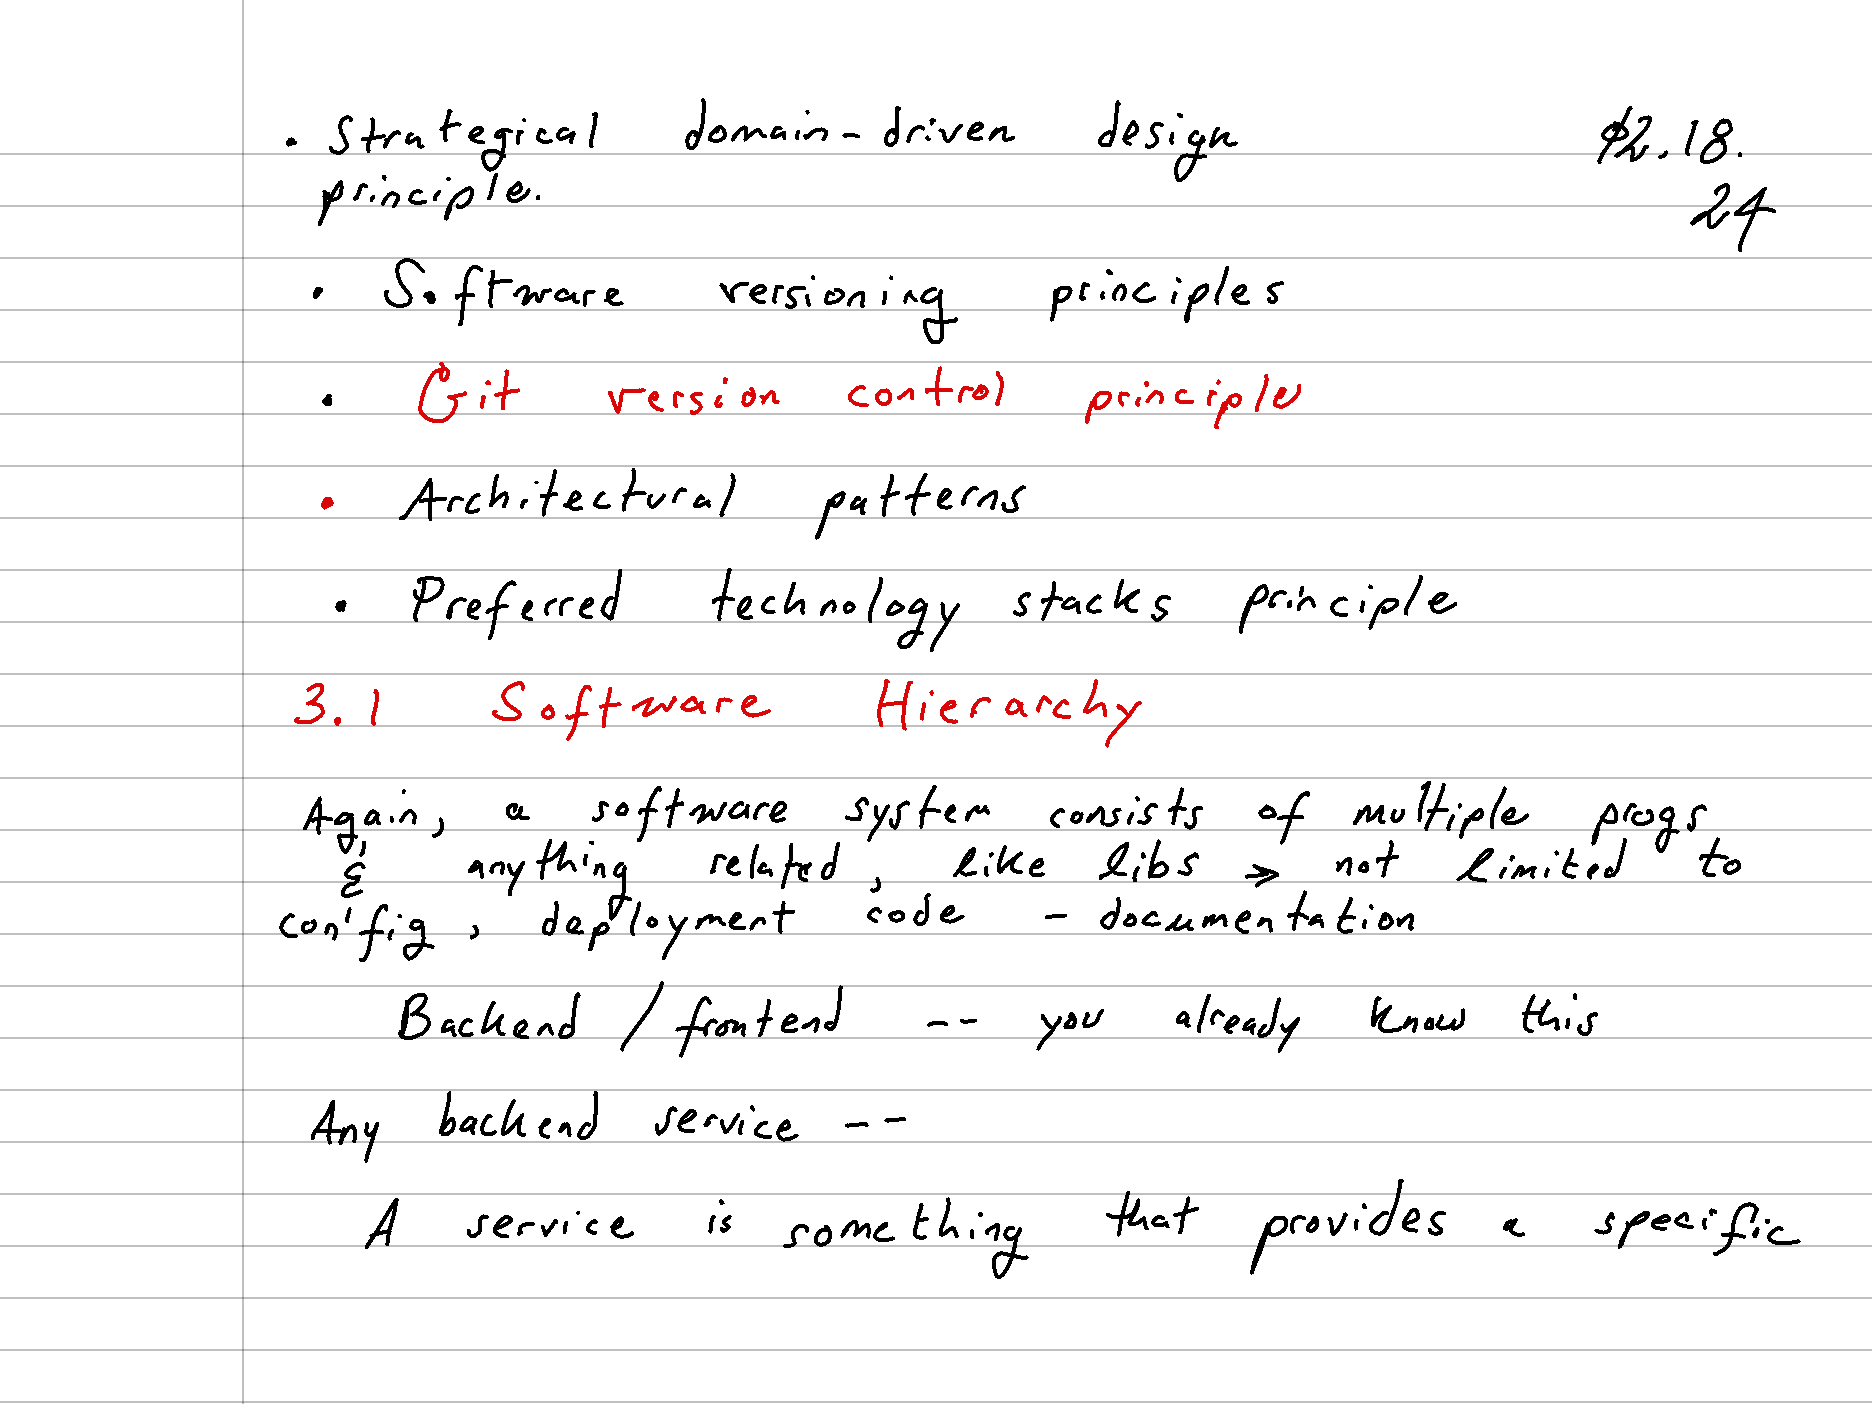 • Strategical domain-driven design 02.18.
principle. 24
• Software versioning principles
• Git version control principle
• Architectural patterns
• Preferred technology stacks principle
3.1 Software Hierarchy
Again, a software system consists of multiple progs
& anything related, like libs > not limited to
config, deployment code - documentation
Backend / frontend -- you already know this
Any backend service --
A service is something that provides a specific